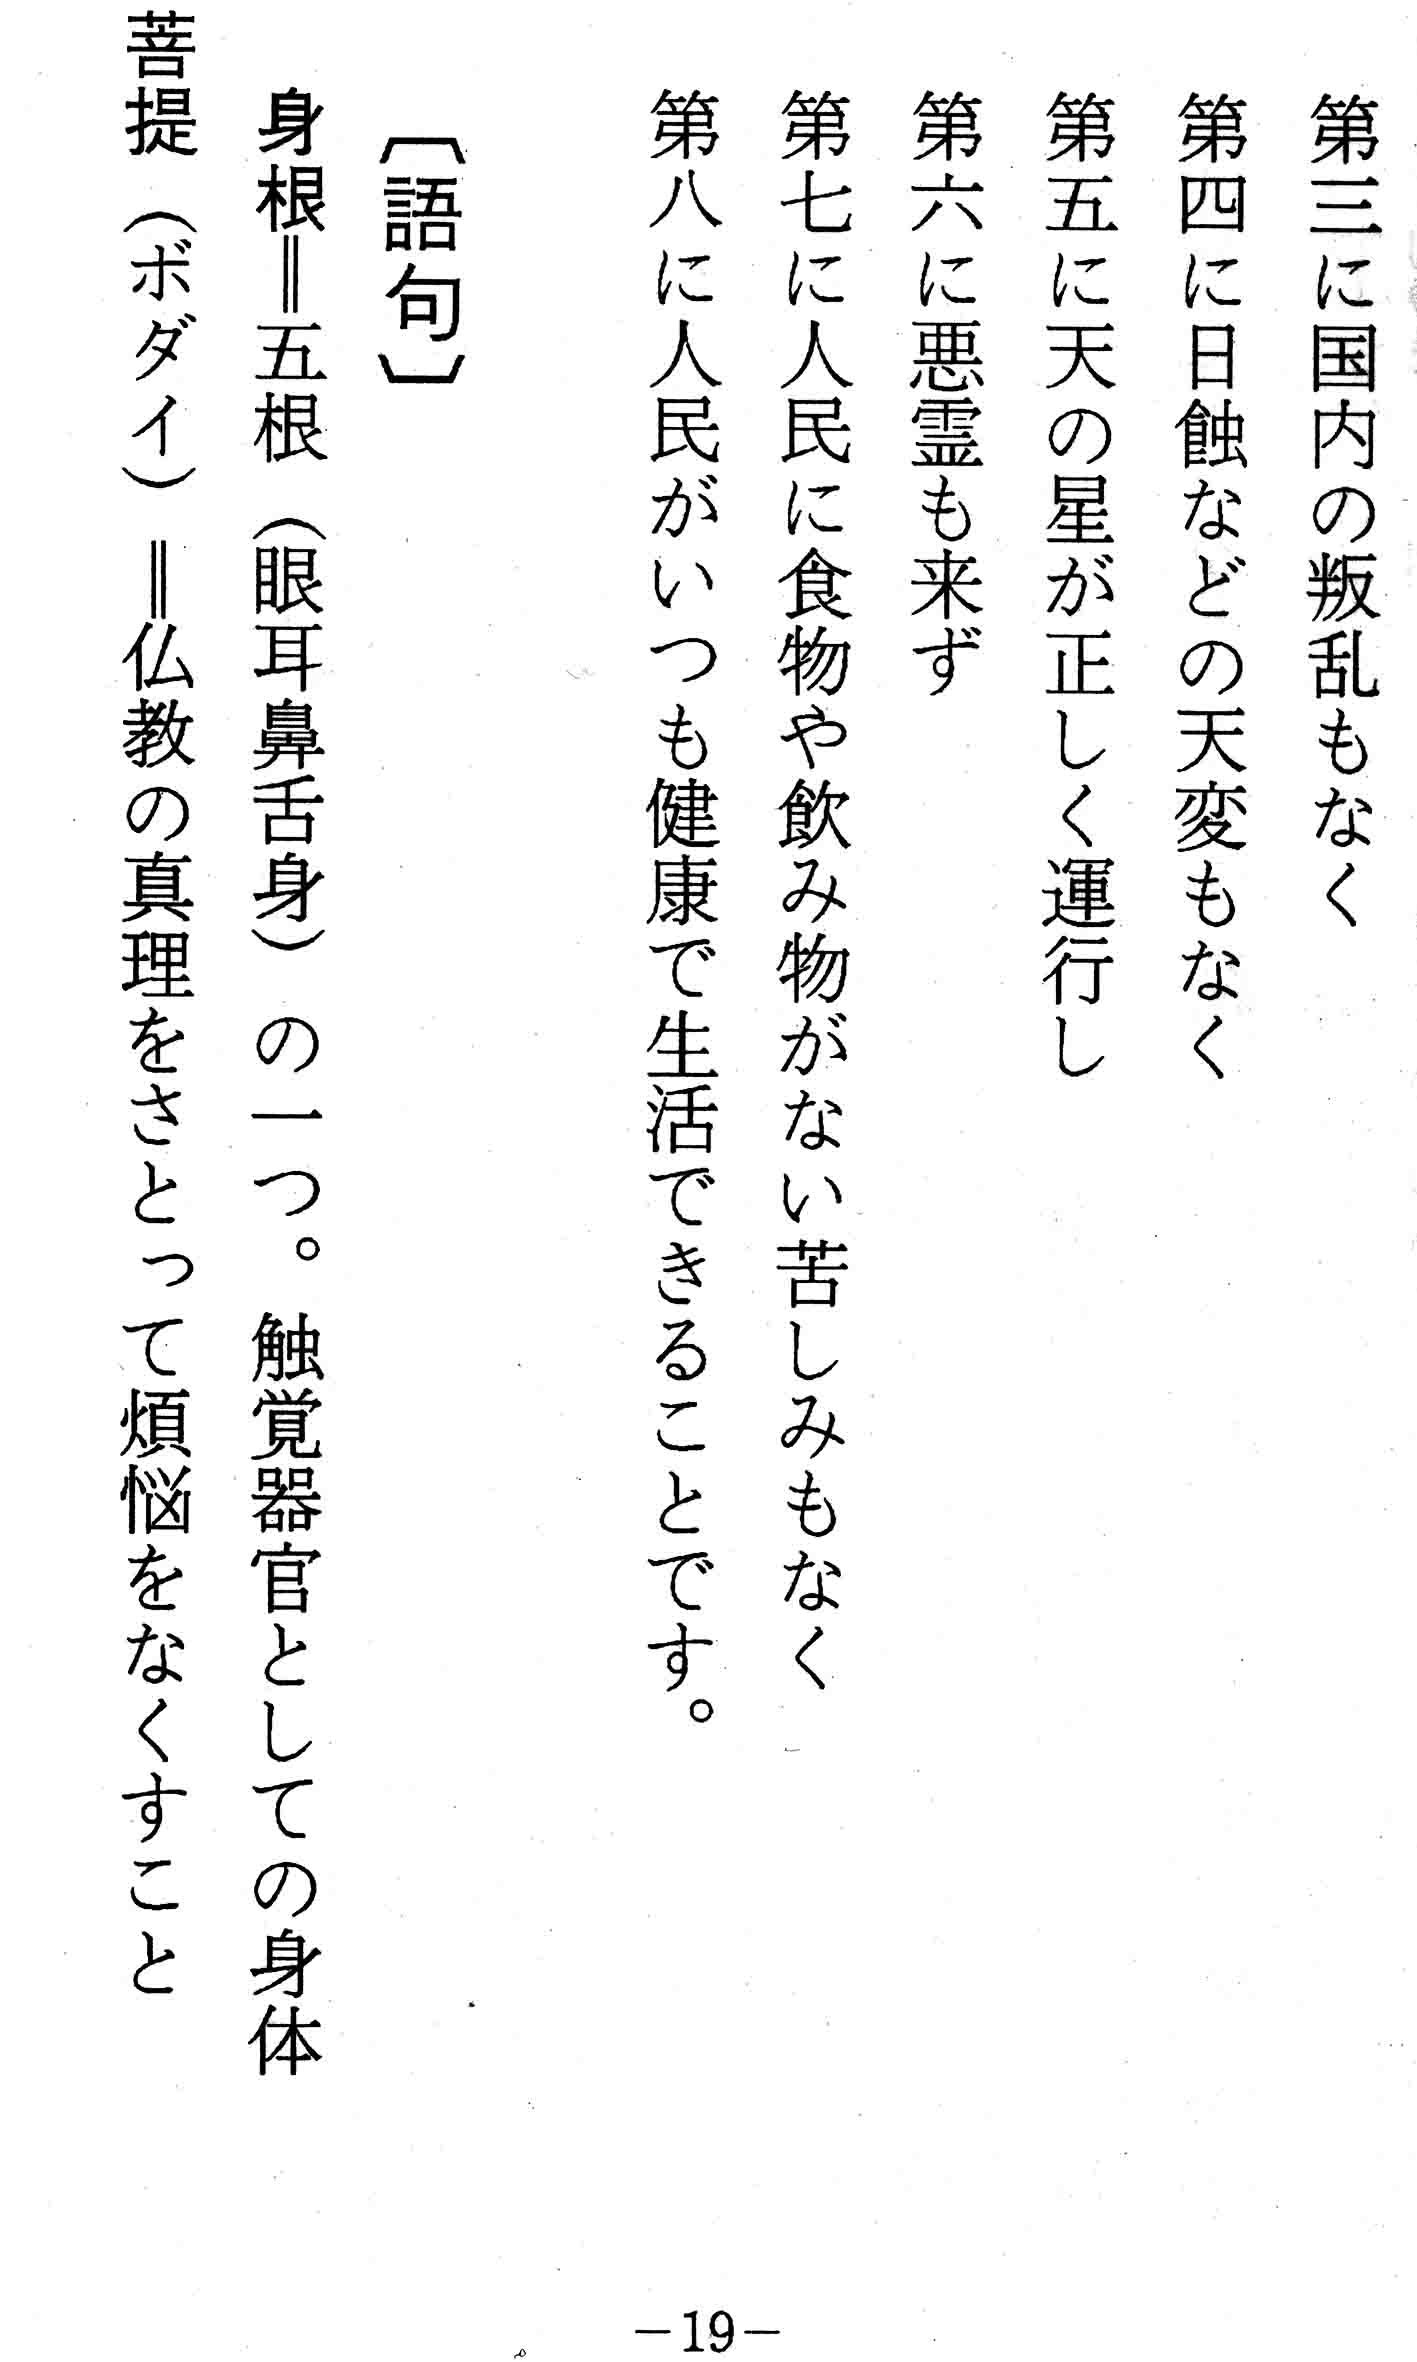 第三に国内の叛乱もなく
第四に日蝕などの天変もなく
第五に天の星が正しく運行し
第六に悪霊も来ず
第七に人民に食物や飲み物がない苦しみもなく
第八に人民がいつも健康で生活できることです。
〔語句〕
身根＝五根（眼耳鼻舌身）の一つ。触覚器官としての身体
菩提（ボダイ）＝仏教の真理をさとって煩悩をなくすこと
－19－